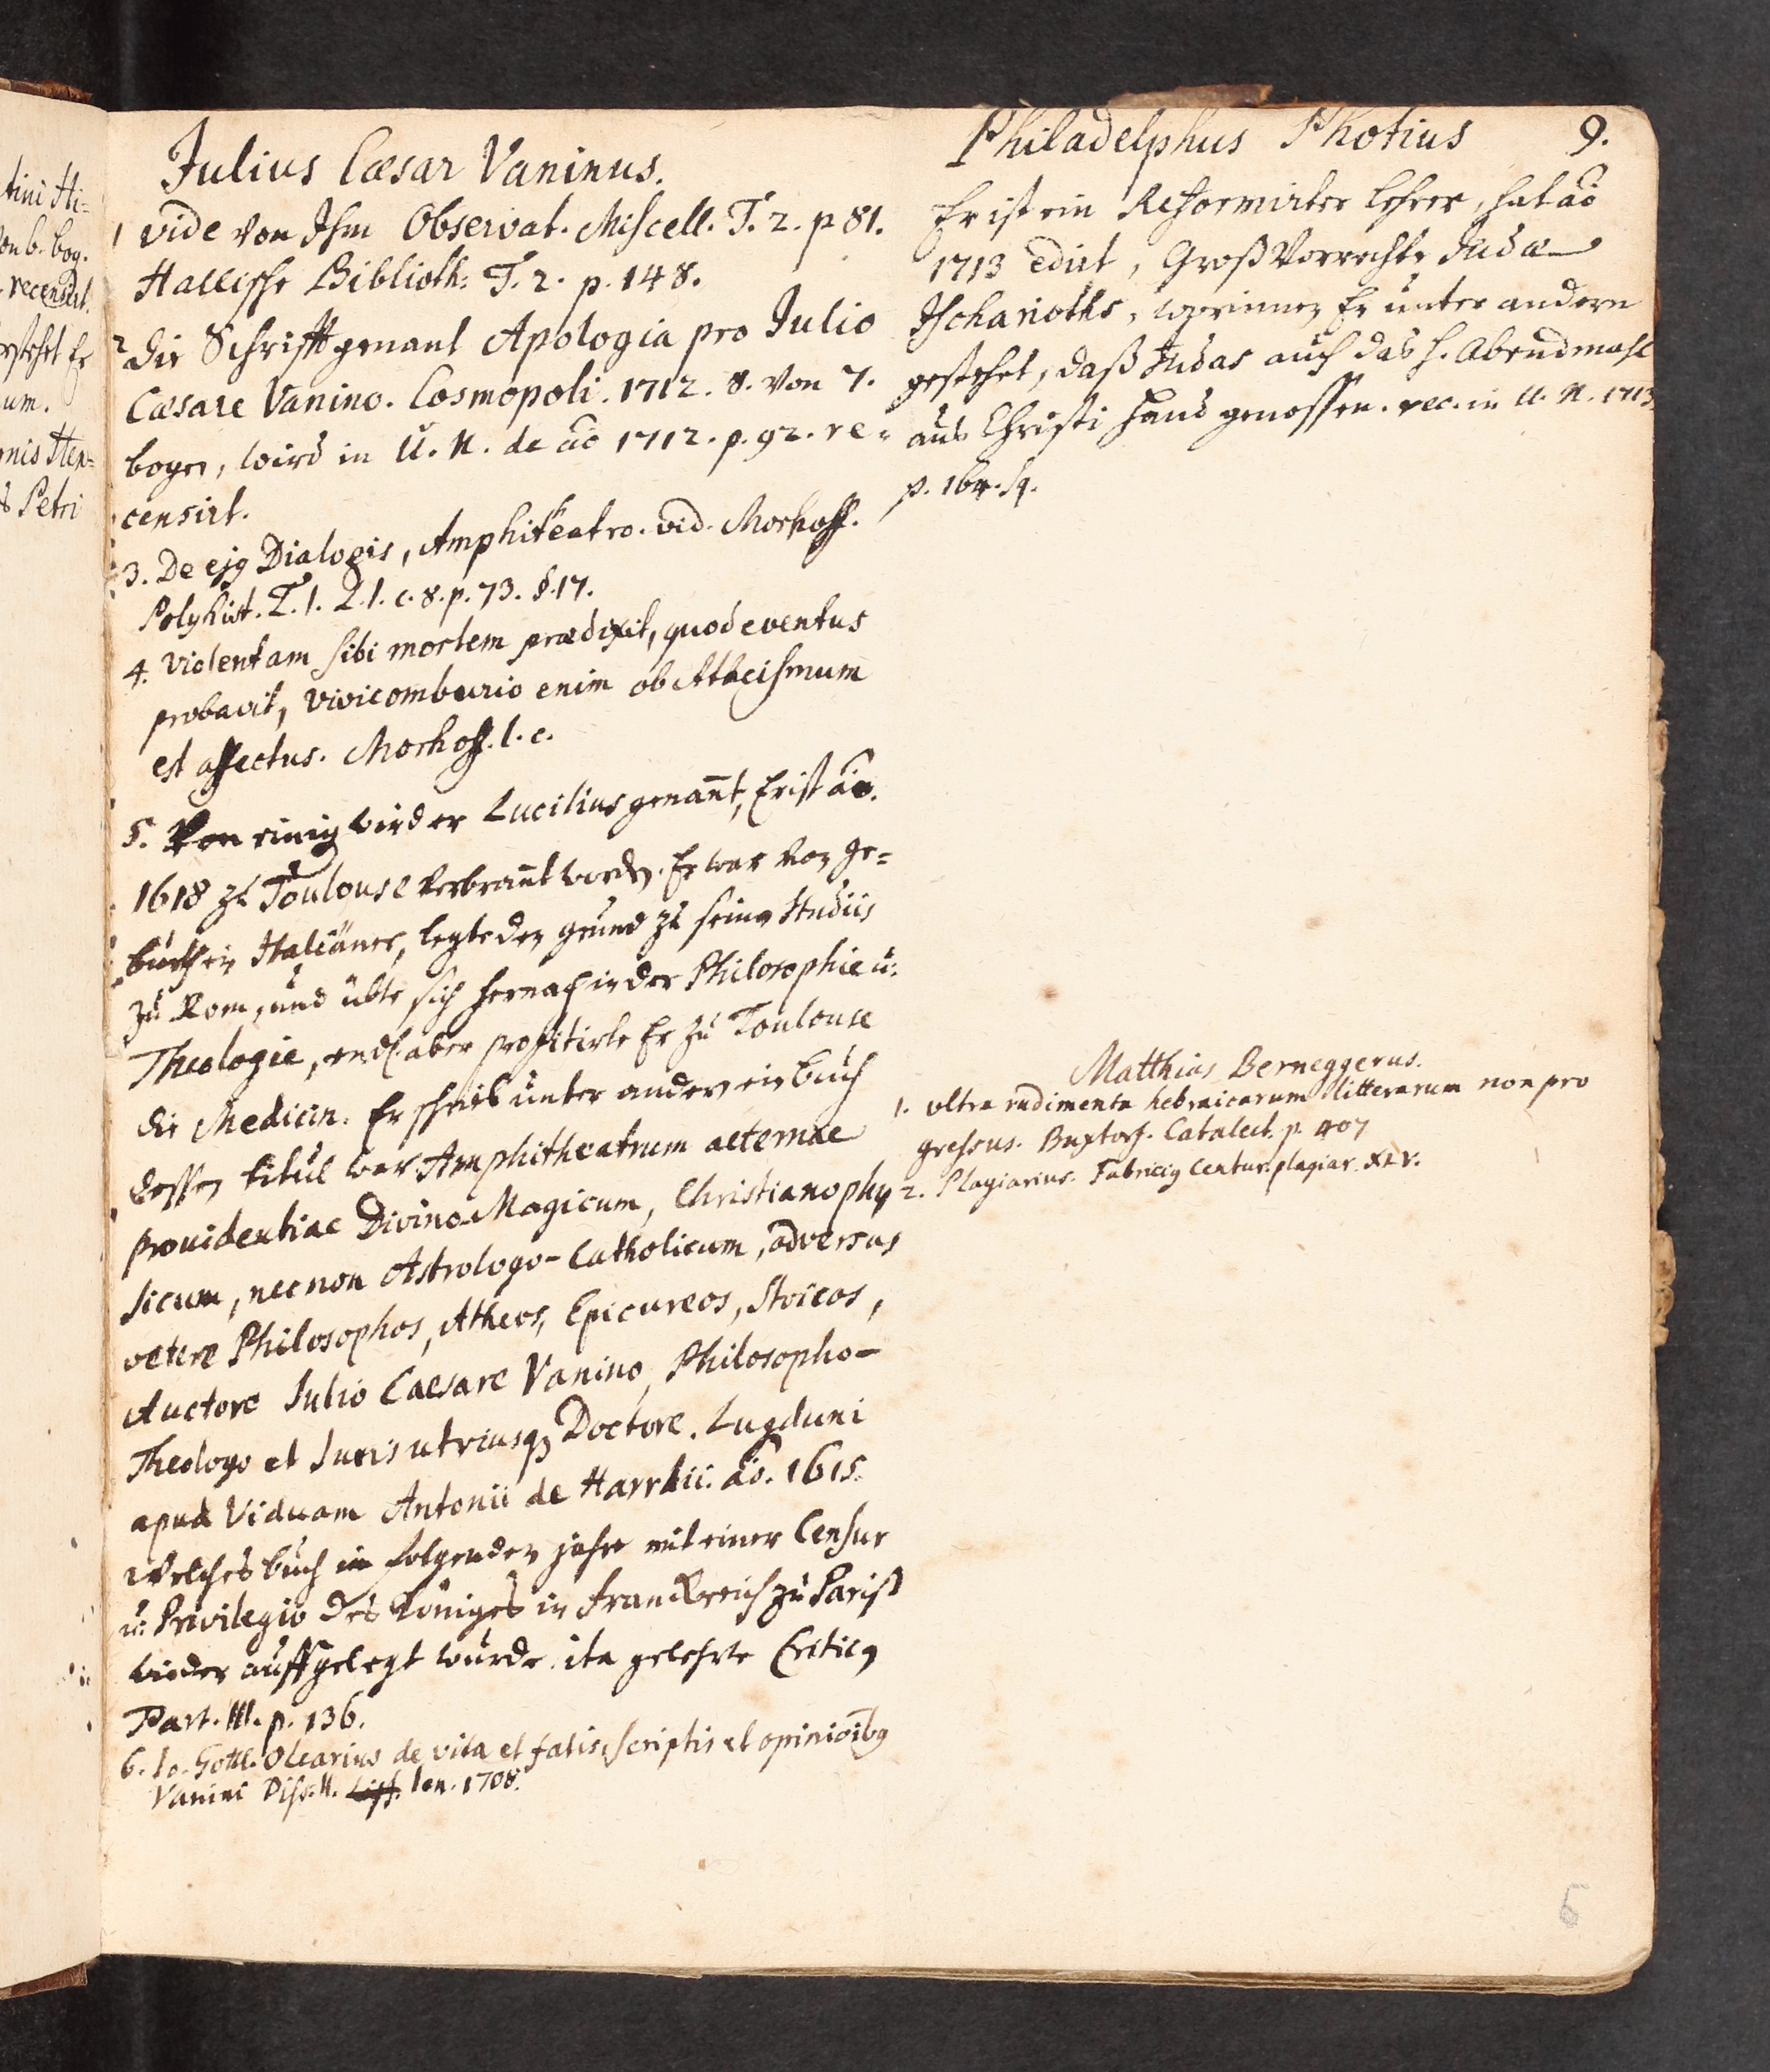 Julius Cæsar Vaninus.
1 vide von Ihm Observat. Miscell. T. 2. p 81.
Hallische Biblioth: T. 2. p. 148.
2 die Schrifft genant Apologia pro Julio
Cæsare Vanino. Cosmopoli. 1712. 8. von 7.
bogen, wird in U. N. de ao 1712. p. 92. re-
censirt.
3. De ejq Dialogis, Amphiteatro. vid. Morhoff.
Polyhist. T. 1. L. 1. c. 8. p. 73. §. 17.
4. violentam sibi mortem prædixit, quod eventus
probavit, vivicomburio enim ob Atheismum
est affectus. Morhoff. l. c.
5. Von einig wird er Lucilius genant, Er ist ao.
1618 zu Toulouse verbrant worden. Er war von ge-
burth ein Italiäner, legte den grund zu seinen Studiis
zu Rom, und übte sich hernach in der Philosophie u.
Theologie, endl. aber profitirte Er zu Toulouse
die Medicin. Er schrieb unter andern ein buch
dessen titul war Amphitheatrum aeternae
prouidentiae Divino-Magicum, Christianophy
sicum, nec non Astrologo-Catholicum, adversus
vetere Philosophos, Atheos, Epicureos, Stoicos,
Auctore Julio Caesare Vanino, Philosopho-
Theologo et Juris utriusq Doctore. Lugduni
apud Viduam Antonii de Harrhii. ao. 1615.
Welches buch in folgenden jahre mit einer Censur
u. Privilegio des Königes in Franckreich zu Pariß
wieder auffgelegt wurde. ita gelehrte Critiq
Part. III. p. 136.
6. Io. Gottl. Olearius de vita et fatis, scriptis et opinioibq
Vanini Diss. II. Ien. 1708.
Philadelphus Photius 9.
Er ist ein Reformirter Lehrer, hat ao
1713 edirt, Groß Vorrechte Judæ
Ischarioths, worinnen Er unter andern
gestehet, daß Judas auch das H. Abendmahl
aus Christi Hand genossen. rec. in U. N. 1713.
p. 164. sq.
Matthias Berneggerus.
1. vltra rudimenta hebraicarum litterarum non pro
gressus. Buxtorf. Catalect. p. 407
2. Plagiarius. Fabriciq Centur. plagiar. XLV.
6
tini Hi-
von 6. bog.
recensirt.
gestehet Er
um.
nis Hen-
s Petri